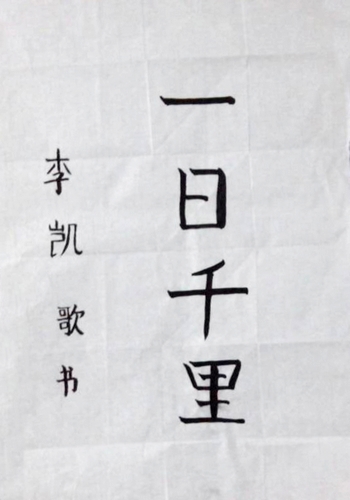 一日千里
李凯歌书